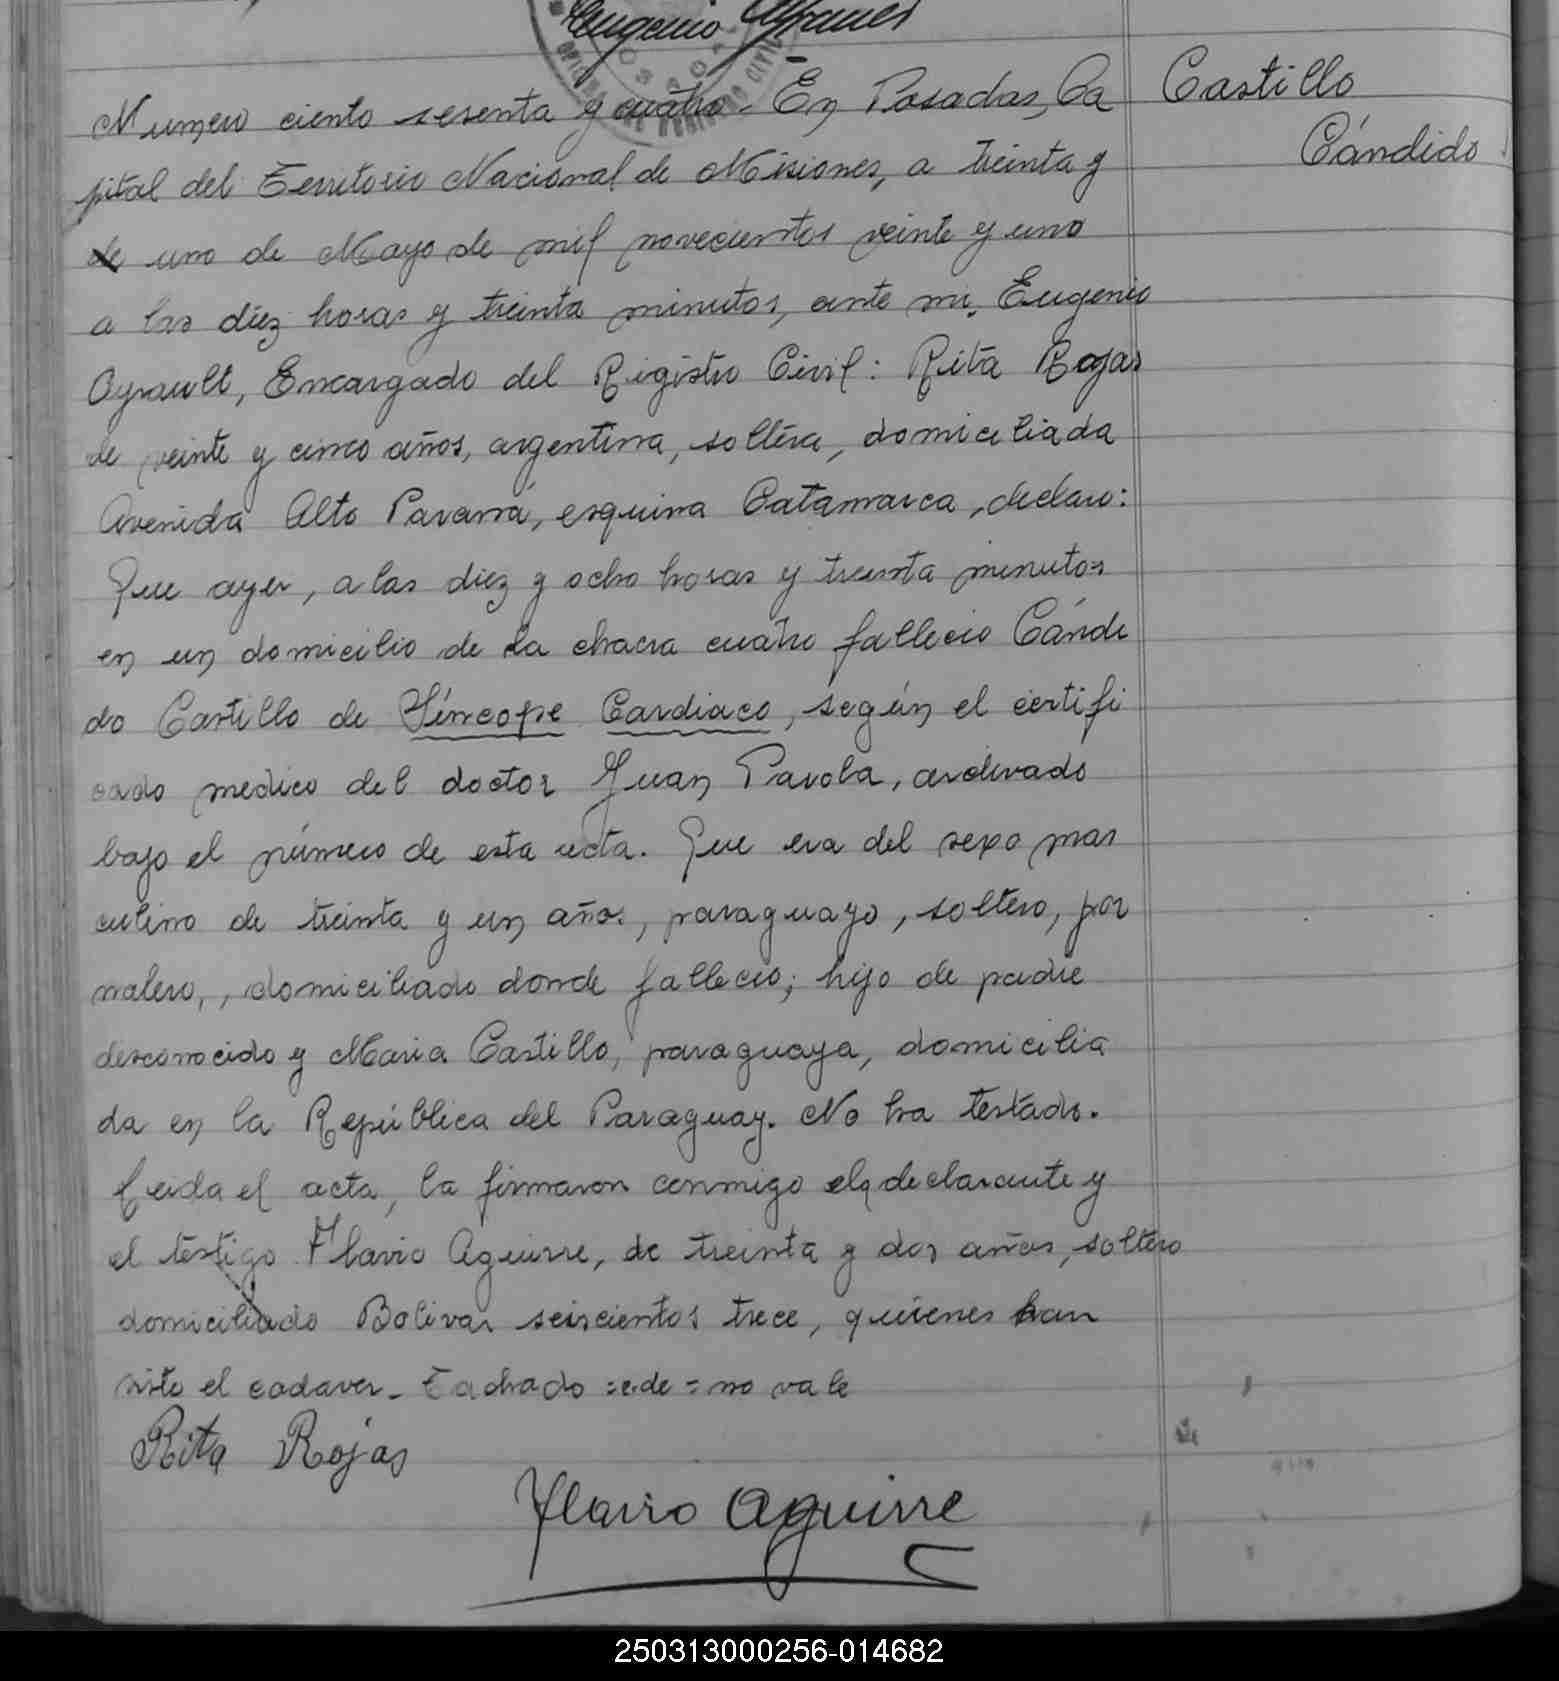 Eugenio Ayrault
Numero ciento sesenta y cuatro - En Posadas, Ca
pital del Territorio Nacional de Misiones, a treinta y
de uno de Mayo de mil novecientos veinte y uno
a las diez horas y treinta minutos, ante mi, Eugenio
Ayrault, Encargado del Registro Civil: Rita Rojas
de veinte y cinco años, argentina, soltera, domiciliada
Avenida Alto Paraná, esquina Catamarca, declaro:
Que ayer, a las diez y ocho horas y treinta minutos
en un domicilio de la chacra cuatro fallecio Cándi
do Castillo de Síncope Cardiaco, según el certifi
cado medico del doctor Juan Parola, archivado
bajo el número de esta acta. Que era del sexo mas
culino de treinta y un años, paraguayo, soltero, jor
nalero, , domiciliado donde fallecio; hijo de padre
desconocido y Maria Castillo, paraguaya, domicilia
da en la República del Paraguay. No ha testado.
Leida el acta, la firmaron conmigo la declarante y
el testigo Flavio Aguirre, de treinta y dos años, soltero
domiciliado Bolivar seiscientos trece, quienes han
visto el cadaver - Tachado = de = no vale
Rita Rojas
Flavio Aguirre
Castillo
Cándido
250313000256-014682